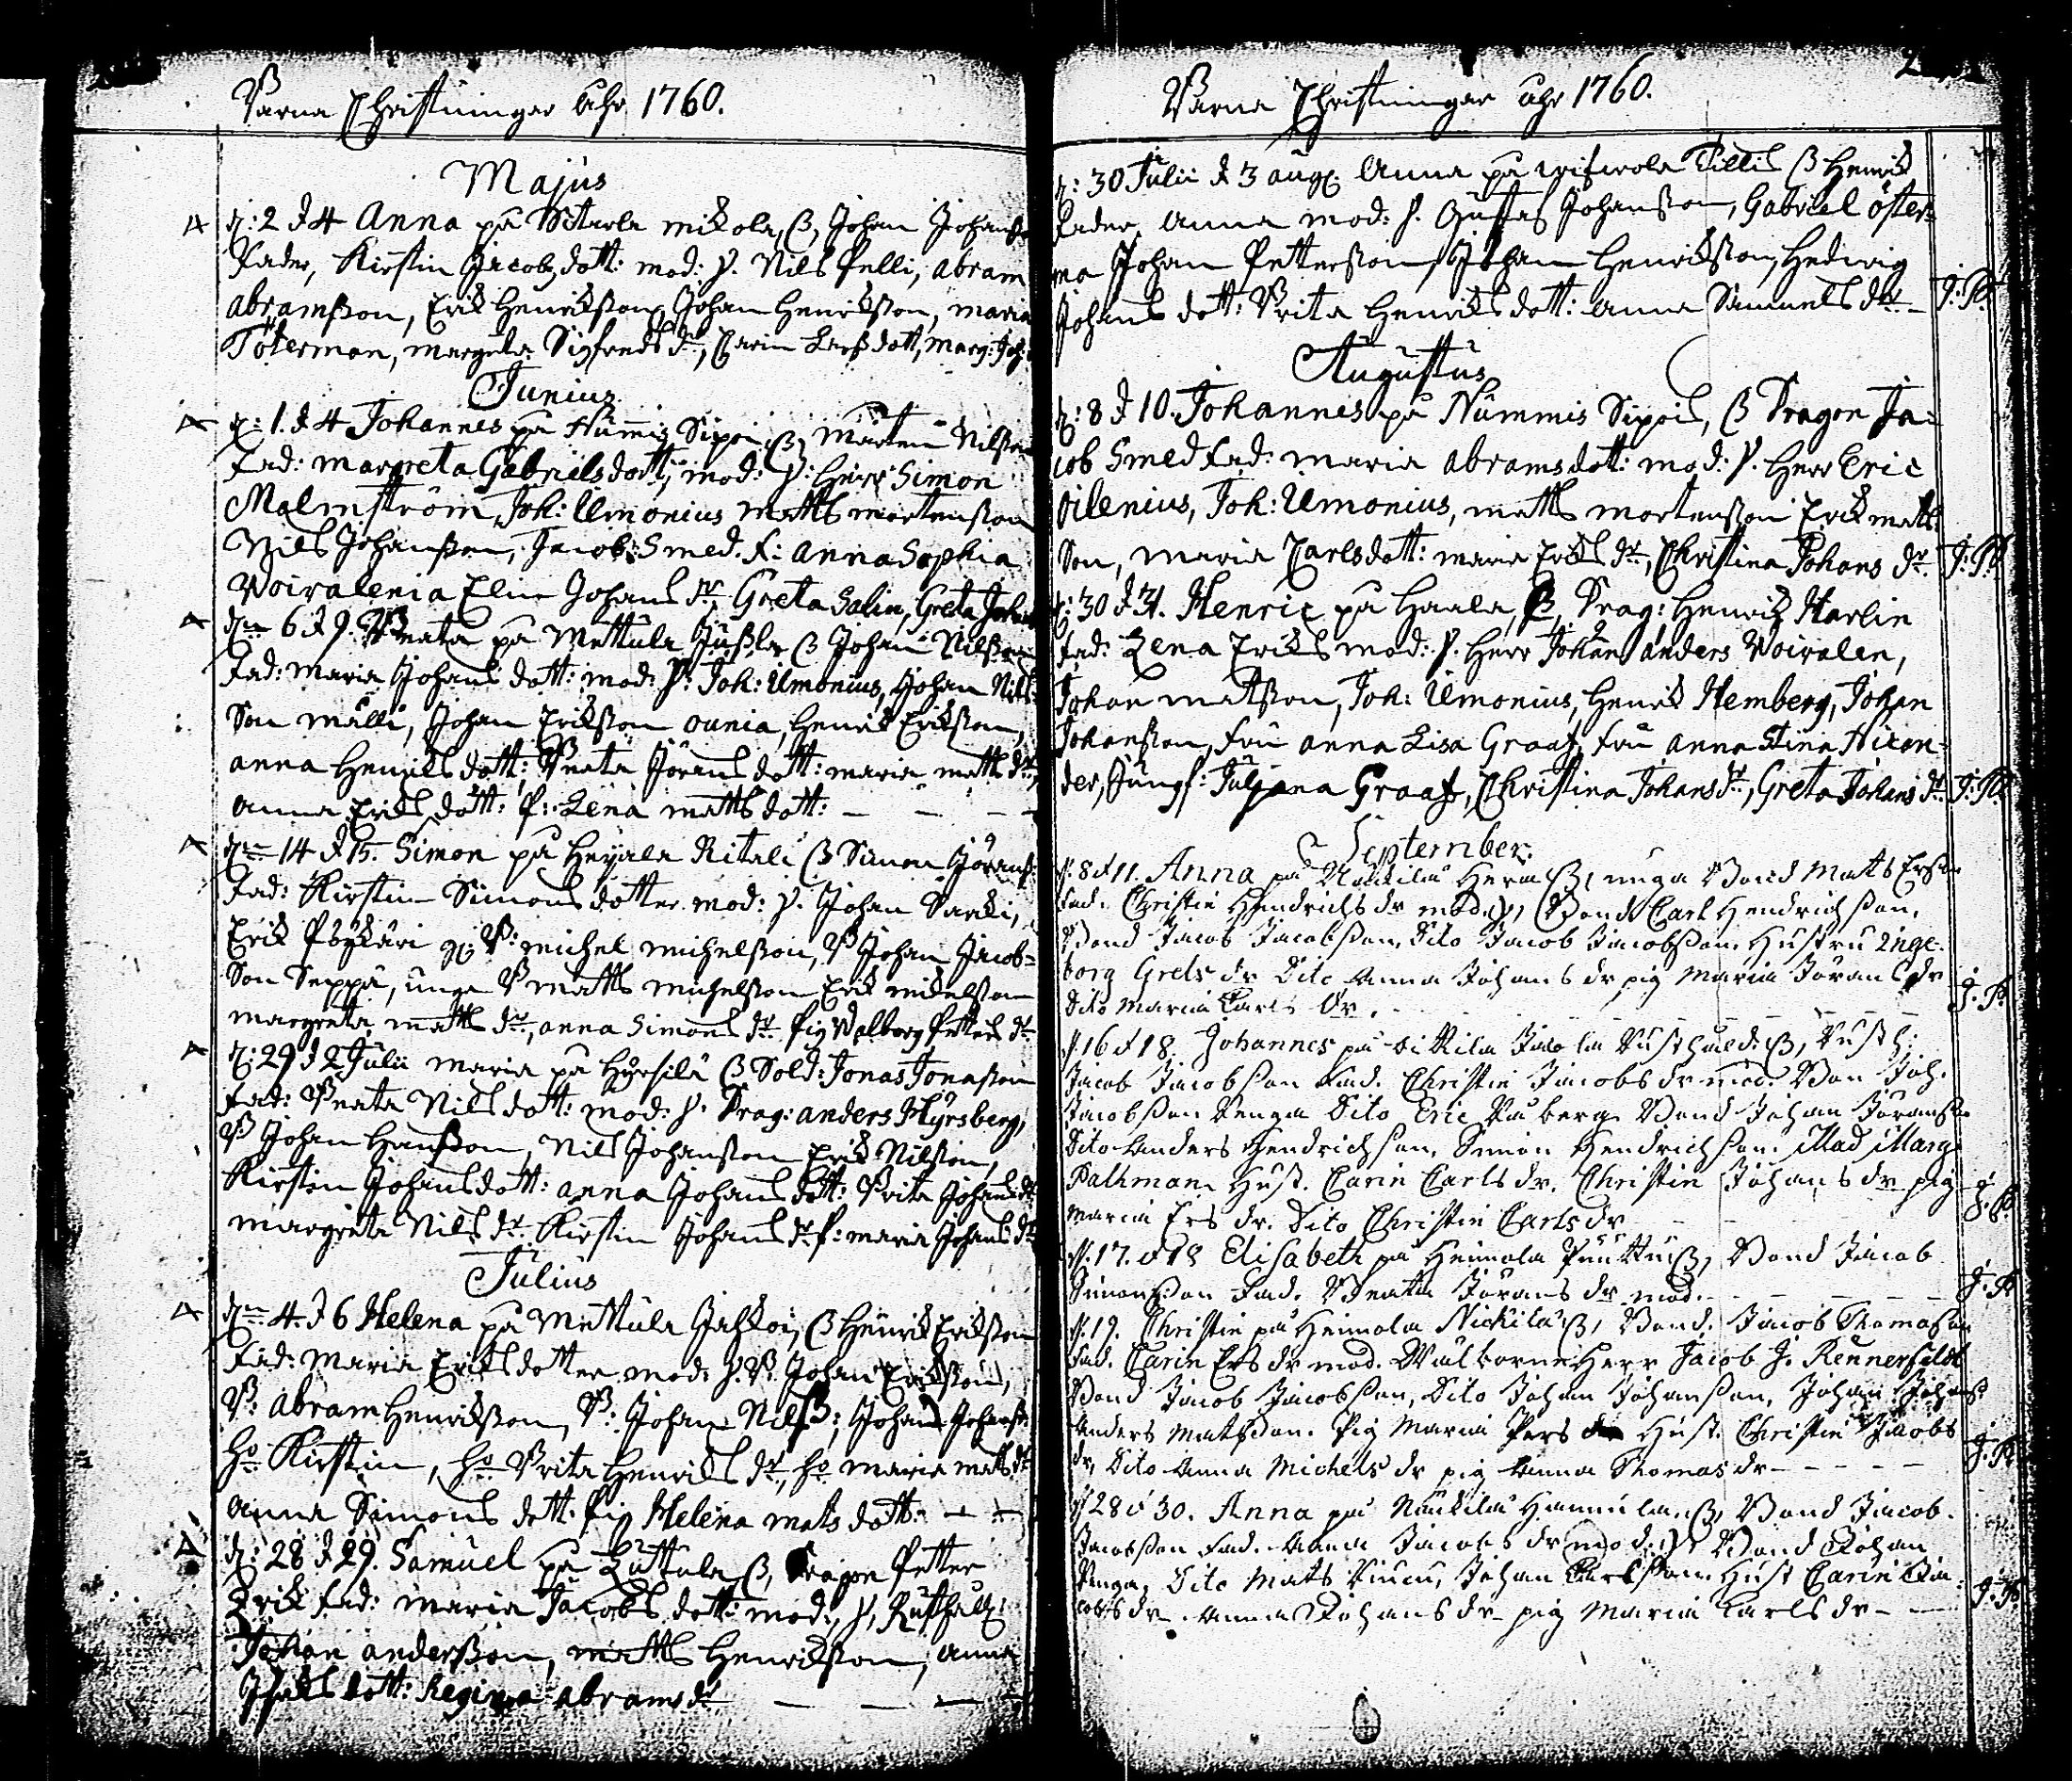 Barna Christningar Ahr 1760.
Majus
d: 2 d 4 Anna på mikola, B, Johan Johanss
Fader, Kirstin Jacobs dott: mod: F. Nils Pelli, abram
abramsson, Erik Henriksson, Johan Henriksson, maria
Töterman, margeta Sigfreds dr, Carin Larss dott, marg: Joh:
Junius
d: 1. d 4 Johannes på Nummis Sipoi, B, mårten Nilsson
Fad: margreta Gabriels dott, mod: F: Herr Simon
Malmström, Joh: Ulmonius matts mårtensson
Nils Johansson, Jacob Smed. F: Anna Sophia
Voivalenia Elin Johans dr, Greta Salin, Greta Johans
den 6 d 9. Beata på Mettula Jussla B Johan Nilsson
Fad: maria Johans dott: mod: F: Joh: Ulmonius, Johan Nils
Son mälli, Johan Eriksson ounia, Henrik Eriksson,
anna Henriks dott: Beata Jörans dott: maria matts dr
anna Eriks dott: P: Lena matts dott: — — —
den 14 d 15. Simon på Heijala Ritali B Simon Jörans
Fad: Kirstin Simons dotter mod: F. Johan Sarki,
Erik B: michel michelsson, B Johan Jacob-
Son Seppä, unga B matts michelsson Erik mickelsson
margreta matts dr, anna Simons dr Pig Walborg Petters dr
d: 29 d 2 Julii maria på Hyrsilä B Sold: Jonas Jonasson
Fad: Beata Nils dott: mod: F. Drag: anders Hyrsberg,
B Johan Hansson, Nils Johansson Erik Nilsson,
Kirstin Johans dott: anna Johans dott: Brita Johans dr
margreta Nils dr Kirstin Johans dr P: maria Johans dr
Julius
den 4. d 6 Helena på Mettula Jaskoi, B Henrik Eriksson
Fad: maria Eriks dotter mod: F. B. Johan Eriksson,
B: Abram Henriksson, B: Johan Nilss; Johan Johanss
ho Kirstin, ho Brita Henriks dr, ho maria matts dr
anna Simons dott. Pig Helena mats dott. — —
d: 28 d 29. Samuel på Luttula B, Dragon Petter
Erik Fad: maria Jacobs dott: mod:, F, Rusthåll:
Johan andersson, matts Henriksson, anna
Isaks dott: Regina abrams dr — — — —
Barna Christningar Ahr 1760.
d: 30 Julii d 3 aug: Anna på Tillis B Henrik
Fader, anna mod: F. Gustaf Johansson, Gabriel öster-
ma Johan Pettersson, Johan Henriksson, Hedwig
Johans dott: Brita Henriks dott: anna Samuels dr — J: P.
Augustus
d: 8 d 10. Johannes på Nummis Sipois, B Dragon Ja-
cob Smed Fad: maria abrams dott: mod: F. Herr Eric
Pilenius, Joh: Ulmonius, matts mortensson Erik matts
Son, maria Carls dott: maria Eriks dr, Christina Johans dr. J: P.
d: 30 d 31. Henric på Haala, B, Drag: Henrik Harlin
Fad: Lena Eriks mod: F. Herr Johan anders Voivalen,
Johan matsson, Joh: Ulmonius, Henrik Hemberg, Johan
Johansson, fru anna Lisa Graaf, fru anna Stina Hixan-
der, Jungf: Juljana Graaf, Christina Johans dr, Greta Johans dr J: P.
September.
d. 8 d 11. Anna på Naukila Hera B, unga Bond Mats Ersson
Fad. Christin Hendrichs dr mod. F, Bond Carl Hendrichsson,
Bond Jacob Jacobsson, Dito Jacob Jacobsson, Hustru Inge-
borg Grels dr Dito Anna Johans dr pig Maria Jörans dr
Dito Maria Carls dr. — — — — J. P.
d. 16 d 18. Johannes på Jacola Rusthåld: B, Rusth:
Jacob Jacobsson Fad. Christin Jacobs dr mod. Bon Joh.
Jacobsson Penga Dito Eric Bond Johan Joransson
Dito Anders Hendrichsson, Simon Hendrichsson. Mad Marg
Palhman Hust. Carin Carls dr. Christin Johans dr pig
Maria Ers dr. Dito Christin Carls dr — — J. P.
d. 17. d 18 Elisabeth på Heimola Punttu B, Bond Jacob
Simonsson Fad. Beata Jörans dr mod. — — — J. P.
d. 19. Christin på Heimola Nickila B, Bond. Jacob Thomasson
Fad. Carin Ers dr mod. Wälborne Herr Jacob J. Rennerfeldt
Bond Jacob Jacobsson, Dito Johan Johansson, Johan Johanss
Anders Matsson. Pig Maria Pers dr Hust. Christin Jacobs
dr, Dito Anna Michels dr pig Anna Thomas dr — — — J: P.
d 28 d 30. Anna på Naukila Hannula, B, Bond Jacob
Jacobsson Fad. Anna Jacobs dr mod. F Bond Johan
Penga, Dito Mats Johan Carlsson Hust Carin Ja-
cobs dr. Anna Johans dr pig Maria Carls dr — — J: P.